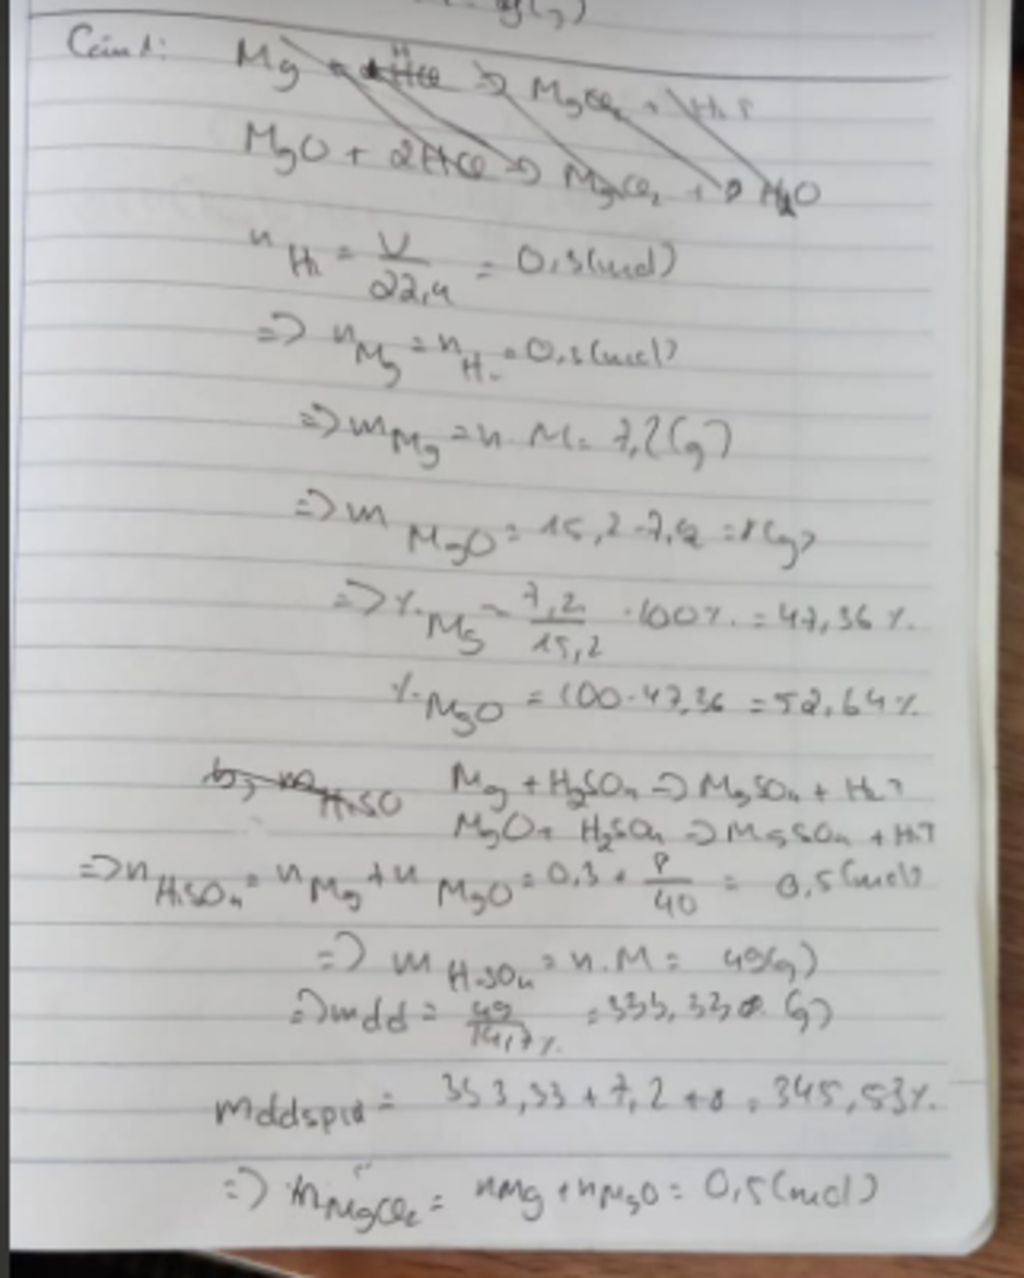 Câu 1: Mg + 2HCl => MgCl₂ + H₂↑
MgO + 2HCl => MgCl₂ + H₂O
n H₂ = V/22,4 = 0,3(mol)
=> n Mg = n H₂ = 0,3(mol)
=> m Mg = n.M = 7,2(g)
=> m MgO = 15,2-7,2 = 8(g)
=> % Mg = 7,2/15,2 .100% = 47,36%.
% MgO = 100-47,36 = 52,64%
b, m H₂SO Mg + H₂SO₄ => MgSO₄ + H₂↑
MgO + H₂SO₄ => MgSO₄ + H₂↑
=> n H₂SO₄ = n Mg + n MgO = 0,3 + 8/40 = 0,5(mol)
=> m H₂SO₄ = n.M = 49(g)
=> mdd = 49/14,7% = 333,33 (g)
mddspứ = 333,33 + 7,2 + 8 = 345,53%.
=> n MgCl₂ = nMg + nMgO = 0,5(mol)